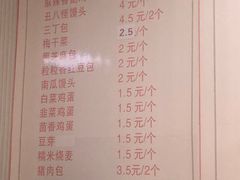 4元/个
丑八怪馒头 4.5元/2个
三丁包 2.5/个
梅干菜 2元/个
包 2元/个
粒粒香豆包 2元/个
南瓜馒头 1.5元/个
白菜鸡蛋 1.5元/个
韭菜鸡蛋 1.5元/个
茴香鸡蛋 1.5元/个
豆芽 1.5元/个
糯米烧麦 1.5元/个
猪肉包 3.5元/2个